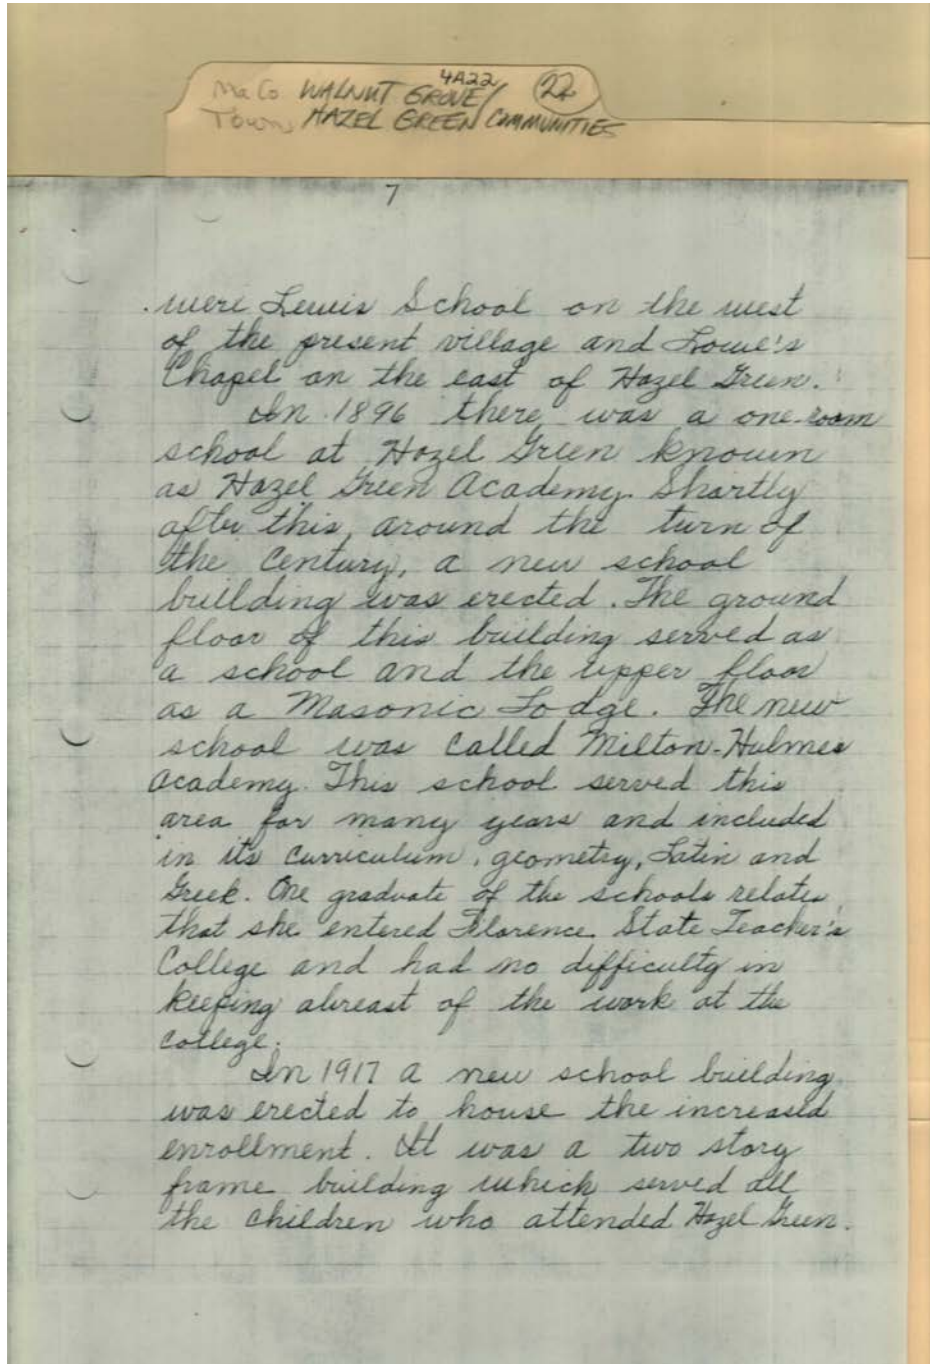 4A22
Ma Co WALNUT GROVE/ 22
Town HAZEL GREEN COMMUNITIES
7
were Lewis School on the west
of the present village and Lowe's
Chapel on the east of Hazel Green.
In 1896 there was a one-room
school at Hazel Green known
as Hazel Green Academy. Shortly
after this, around the turn of
the Century, a new school
building was erected. The ground
floor of this building served as
a school and the upper floor
as a Masonic Lodge. The new
school was called Milton-Hulmes
Academy. This school served this
area for many years and included
in its curriculum, geometry, Latin and
Greek. One graduate of the schools relates
that she entered Florence State Teacher's
College and had no difficulty in
keeping abreast of the work at the
college.
In 1917 a new school building
was erected to house the increased
enrollment. It was a two story
frame building which served all
the children who attended Hazel Green.